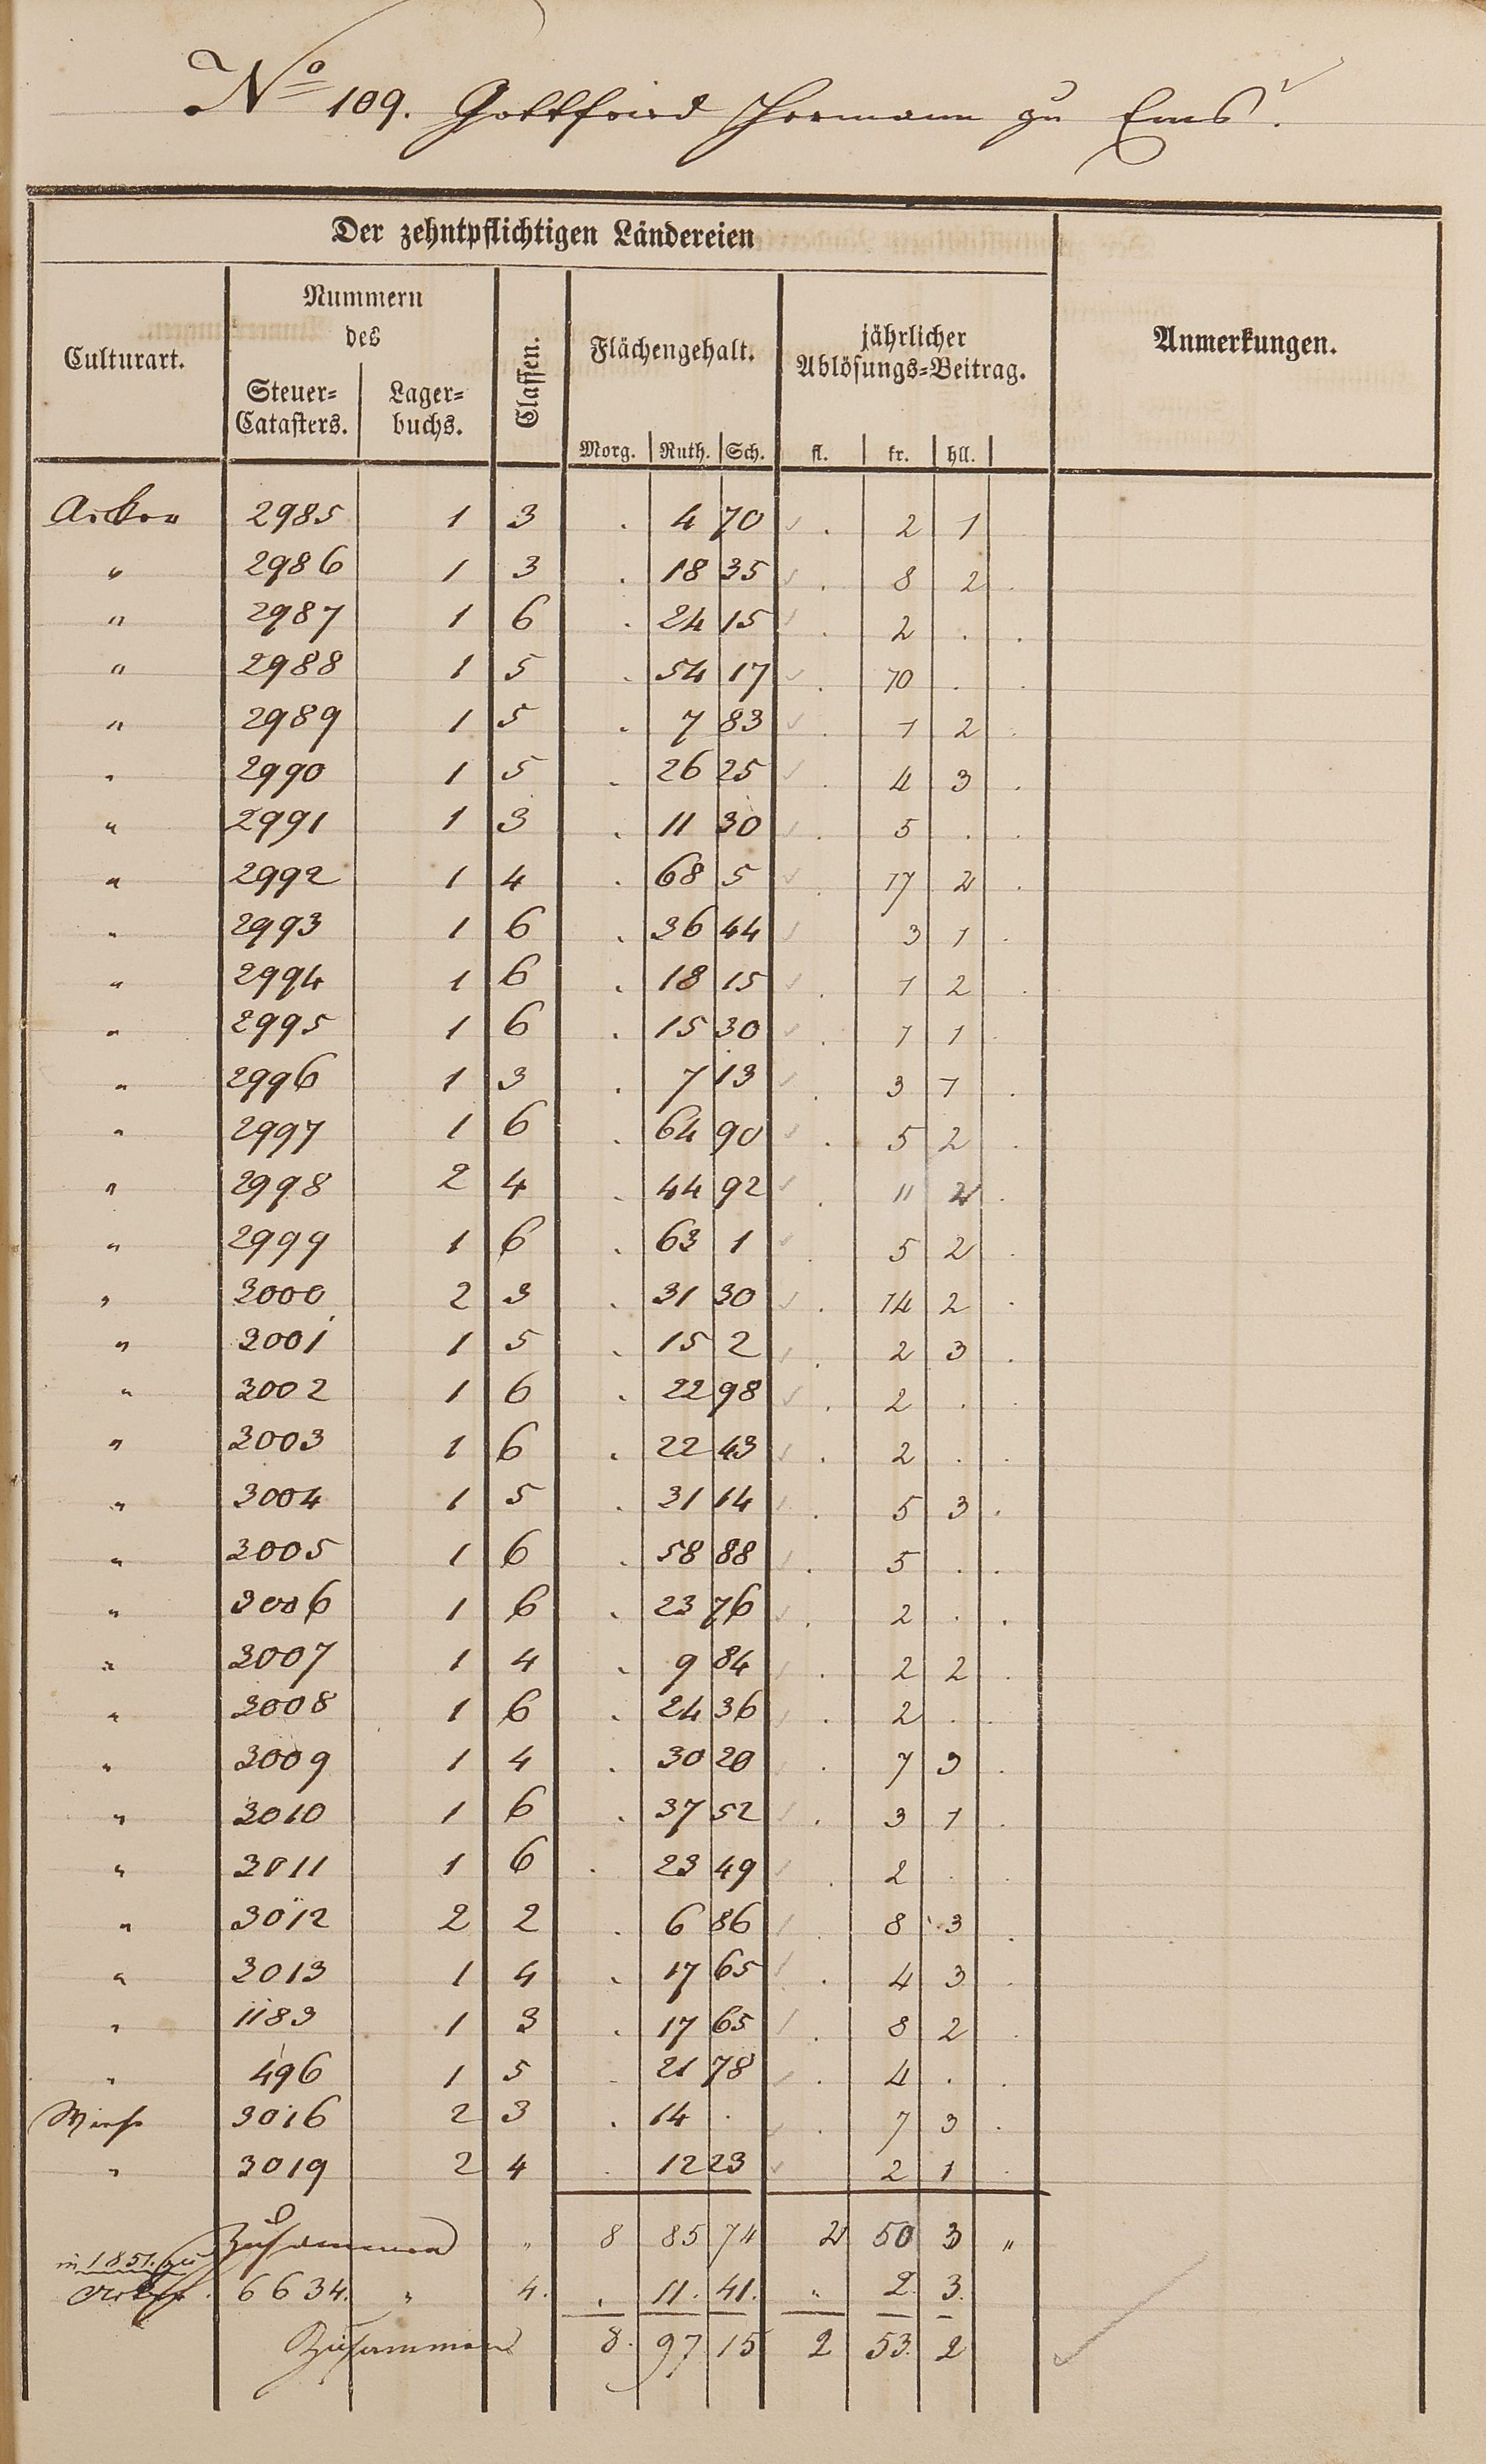 No 109. Gottfried Hermann zu Ems.
Der zehntpflichtigen Ländereien
Culturart. Nummern des Steuer=Catasters. Lager=buchs. Classen. Flächengehalt. jährlicher Ablösungs=Beitrag. Anmerkungen.
Morg. Ruth. Sch. fl. kr. hll.
Acker 2985 1 3 . 4 70 . 2 1
" 2986 1 3 . 18 35 . 8 2 .
" 2987 1 6 . 24 15 . 2 . .
" 2988 1 5 . 54 17 . 10 . .
" 2989 1 5 . 7 83 . 1 2 .
" 2990 1 5 . 26 25 . 4 3 .
" 2991 1 3 . 11 30 . 5 . .
" 2992 1 4 . 68 5 . 17 2 .
" 2993 1 6 . 36 44 3 1 .
" 2994 1 6 . 18 15 . 1 2 .
" 2995 1 6 . 15 30 . 1 1 .
" 2996 1 3 . 7 13 . 3 1 .
" 2997 1 6 . 64 90 . 5 2 .
" 2998 2 4 . 44 92 . 11 2 .
" 2999 1 6 . 63 1 . 5 2 .
" 3000 2 3 . 31 30 . 14 2 .
" 3001 1 5 . 15 2 . 2 3 .
" 3002 1 6 . 22 98 . 2 . .
" 3003 1 6 . 22 43 . 2 . .
" 3004 1 5 . 31 14 . 5 3 .
" 3005 1 6 . 58 88 . 5 . .
" 3006 1 6 . 23 76 . 2 . .
" 3007 1 4 . 9 84 . 2 2 .
" 3008 1 6 . 24 36 . 2 . .
" 3009 1 4 . 30 20 . 7 3 .
" 3010 1 6 . 37 52 . 3 1 .
" 3011 1 6 . 23 49 . 2 . .
" 3012 2 2 . 6 86 . 8 3 .
" 3013 1 4 . 17 65 . 4 3 .
" 1183 1 3 . 17 65 . 8 2 .
" 496 1 5 . 21 78 . 4 . .
Wiese 3016 2 3 . 14 . . 7 3 .
" 3019 2 4 . 12 23 2 1 .
Zusammen " 8 85 74 2 50 3 "
in 1851. zu
Acker. 6634. " 4. . 11. 41. " 2. 3.
Zusammen 8. 97 15 2 53. 2